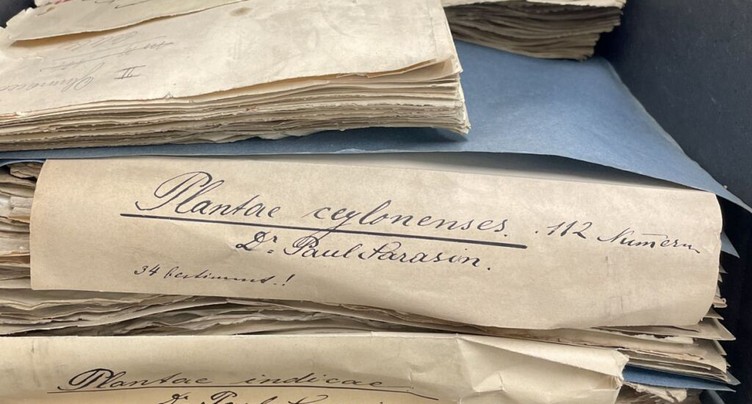 Plantae ceylonenses. 112 Numern
Dr. Paul Sarasin.
34 bestimmt.!
Plantae indicae
Dr. Paul